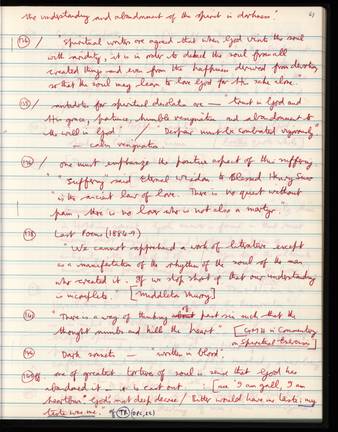 the understanding and abandonment of the spirit in darkness."
61
"Spiritual writers are agreed that when God visits the soul
with aridity, it is in order to detach the soul from all
created things and even from the happiness derived from devotion
so that the soul may learn to love God for His sake alone."
antidotes for spiritual desolation are — "trust in God and
His grace, patience, humble resignation and abandonment to
the will of God" / "Despair must be combated vigorously"
— calm resignation.
one must emphasize the positive aspect of this suffering
"Suffering" said Eternal Wisdom to Blessed Henry Suso
"is the ancient law of love. There is no quest without
pain, there is no lover who is not also a martyr."
Last Poems (1884-9)
"We cannot apprehend a work of literature except
as a manifestation of the rhythm of the soul of the man
who created it. If we stop short of that our understanding
is incomplete." [Middleton Murry]
"There is a way of thinking of past sin such that the
thought numbs and kills the heart" [GMH in Commentary
on Spiritual Exercises]
Dark sonnets — "written in blood".
one of greatest tortures of soul is sense that God has
abandoned it — it is cast out : [use "I am gall, I am
heartburn. God's most deep decree / Bitter would have me taste; my
taste was me."